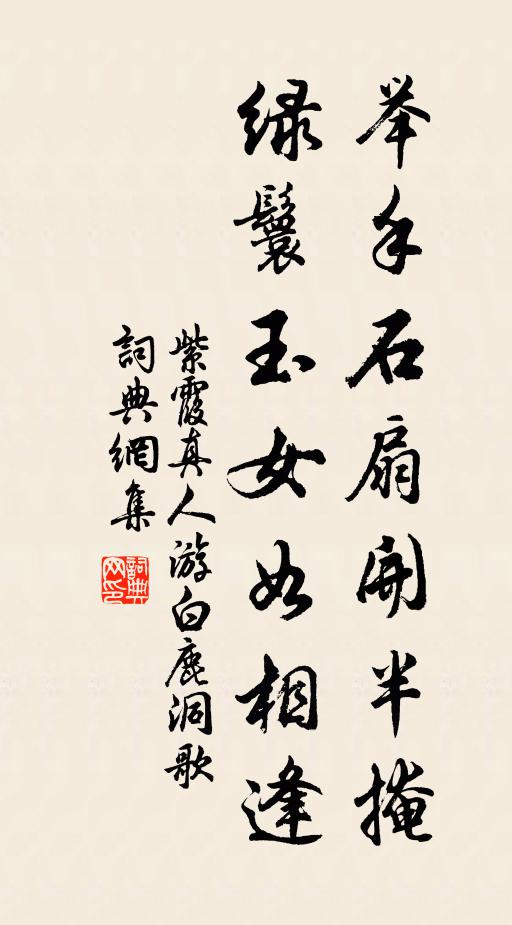 举手石扇开半掩
绿鬟玉女如相逢
紫霞真人游白鹿洞歌
詞典網集
詞典网印